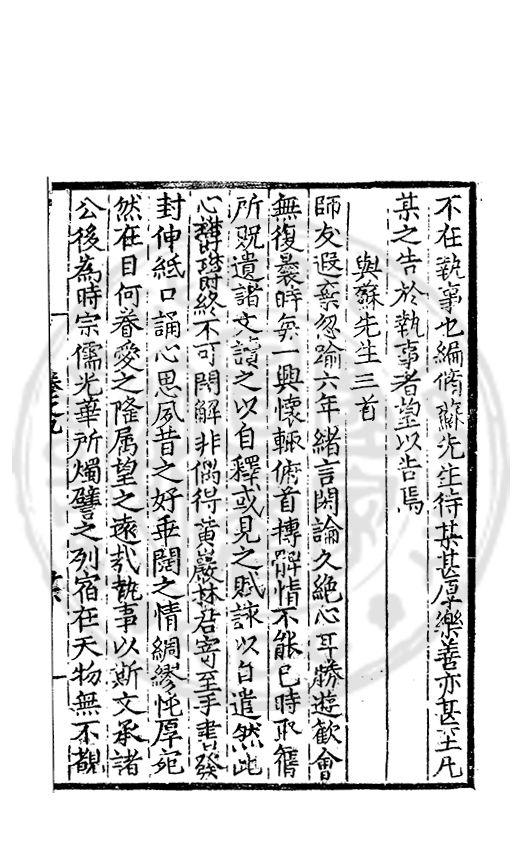 不在執事也編脩蘇先生待某甚厚樂善亦甚至凡
某之告於執事者望以告焉
與蘇先生三首
師友遐棄忽踰六年緒言閎論久絕心耳勝遊歡會
無復曩時每一興懷輒俯首搏髀情不能已時取舊
所貺遺諸文讀之以自釋或見之賦詠以自遣然此
心終不可開解非偶得黃巖林君寄至手書發
封伸紙口誦心思夙昔之好垂閔之情綢繆忳厚宛
然在目何眷愛之隆属望之遠哉執事以斯文承諸
公後為時宗儒光華所燭譬之列宿在天物無不覩
卷之九